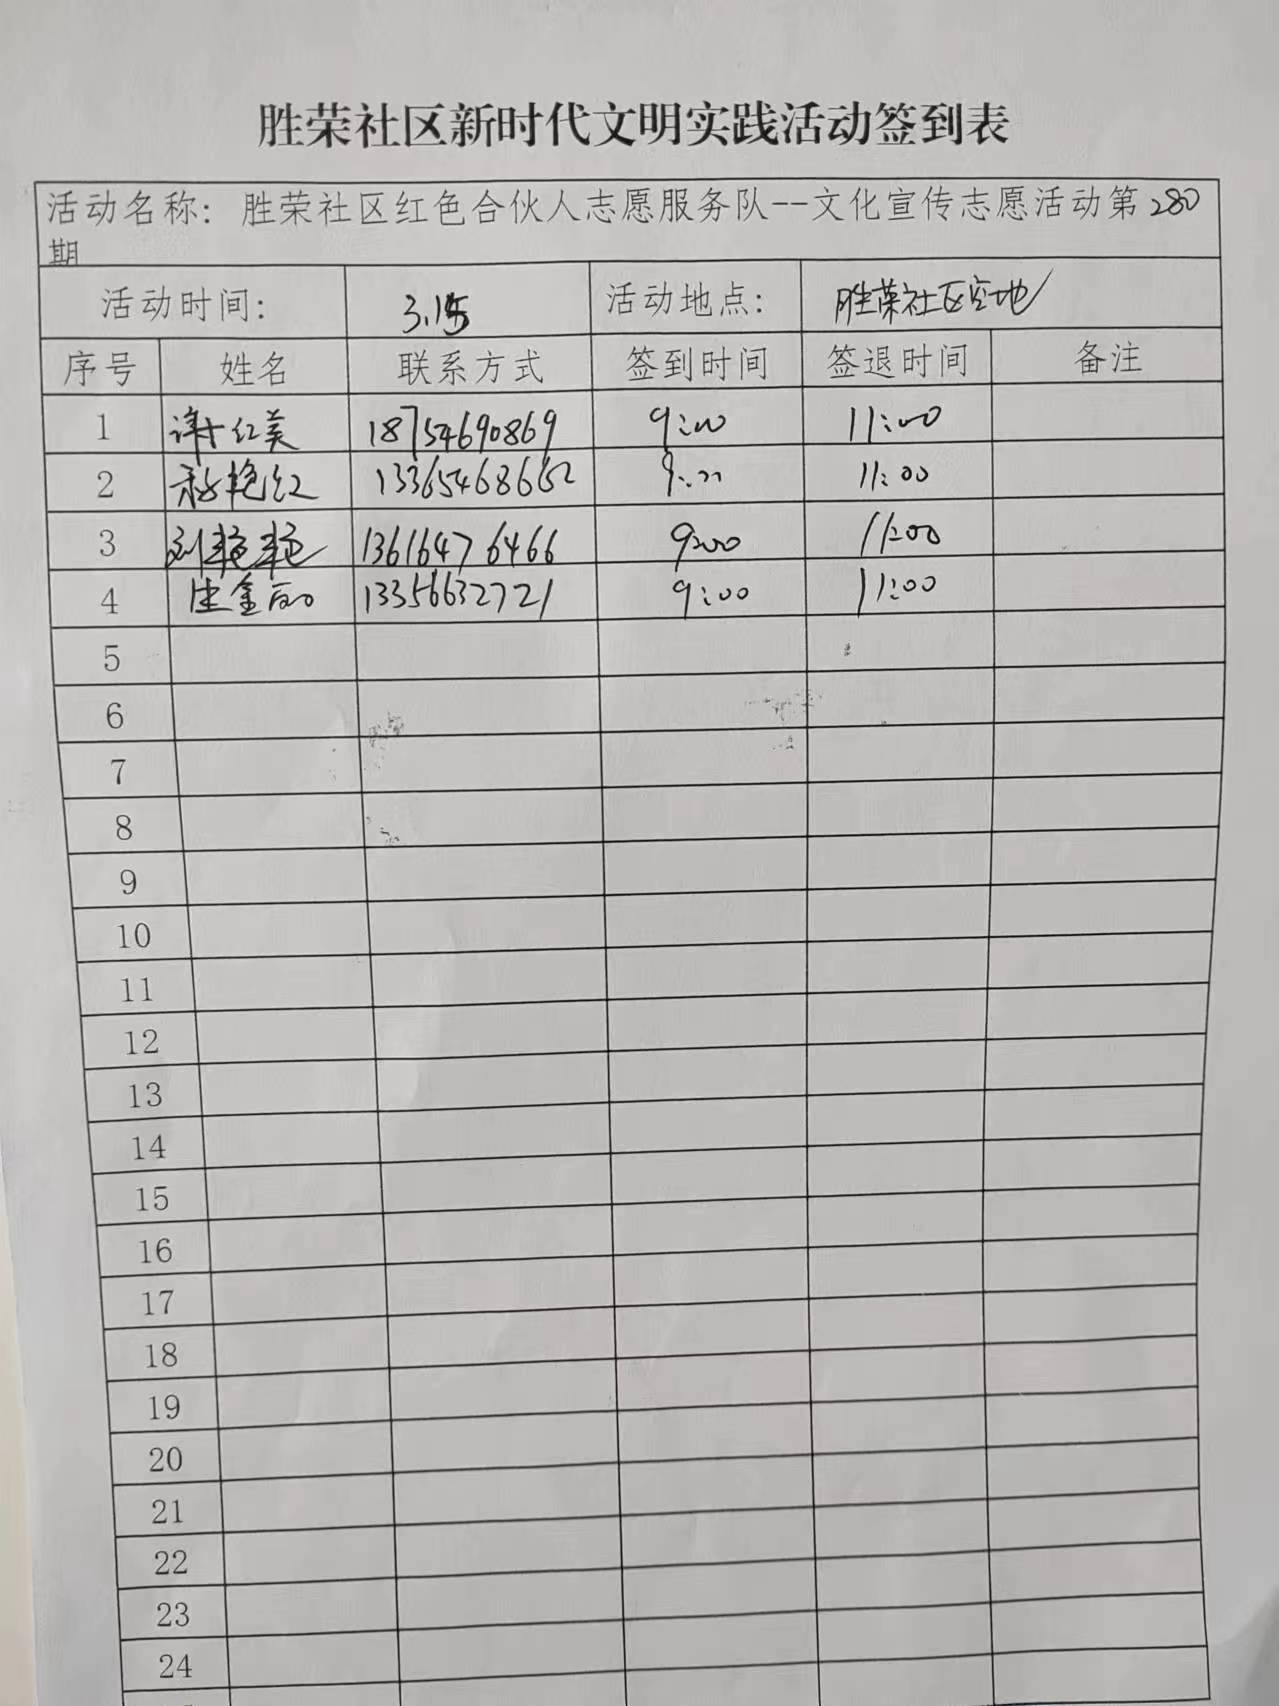 胜荣社区新时代文明实践活动签到表
活动名称：胜荣社区红色合伙人志愿服务队--文化宣传志愿活动第280
期
活动时间： 3.15 活动地点： 胜荣社区空地
序号 姓名 联系方式 签到时间 签退时间 备注
1 谢红美 18754690869 9:00 11:00
2 艳红 13365468662 9:00 11:00
3 刘艳艳 13616476466 9:00 11:00
4 金丽 13356632721 9:00 11:00
5
6
7
8
9
10
11
12
13
14
15
16
17
18
19
20
21
22
23
24